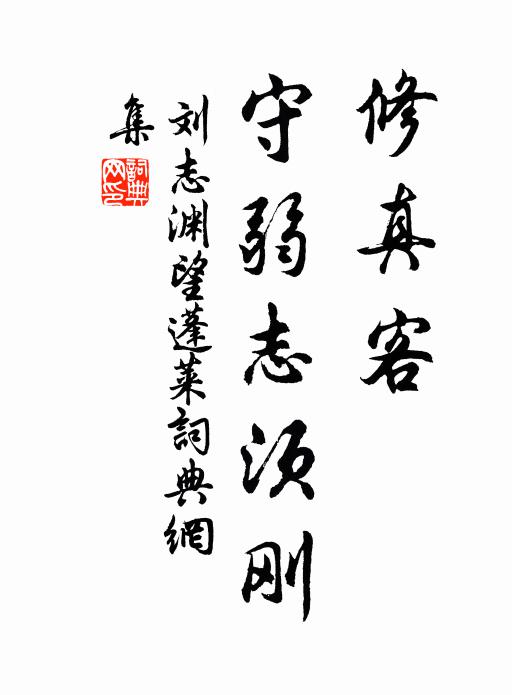 修真客
守弱志须刚
刘志渊望蓬莱詞典網
集
詞典
网印